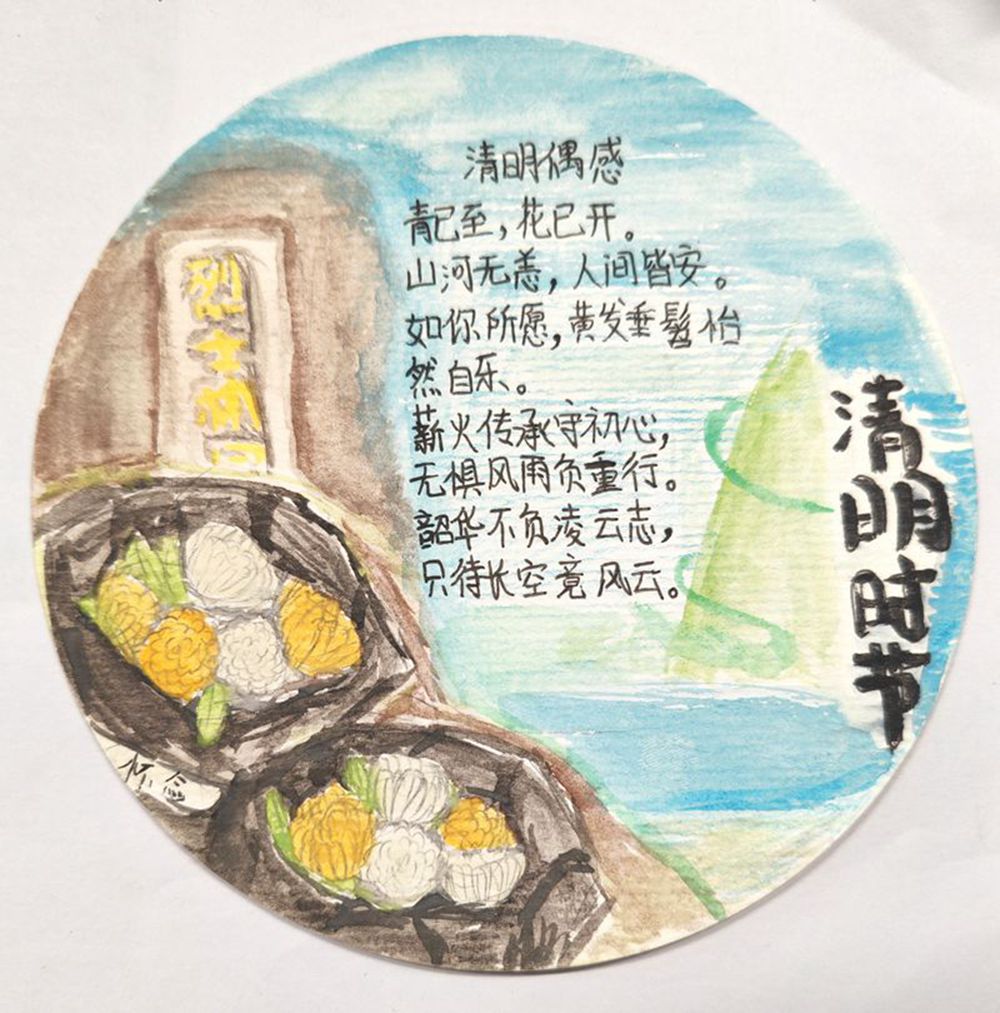 清明偶感
青已至，花已开。
山河无恙，人间皆安。
如你所愿，黄发垂髫怡
然自乐。
薪火传承守初心，
无惧风雨负重行。
韶华不负凌云志，
只待长空竟风云。
清明时节
烈士
怀念